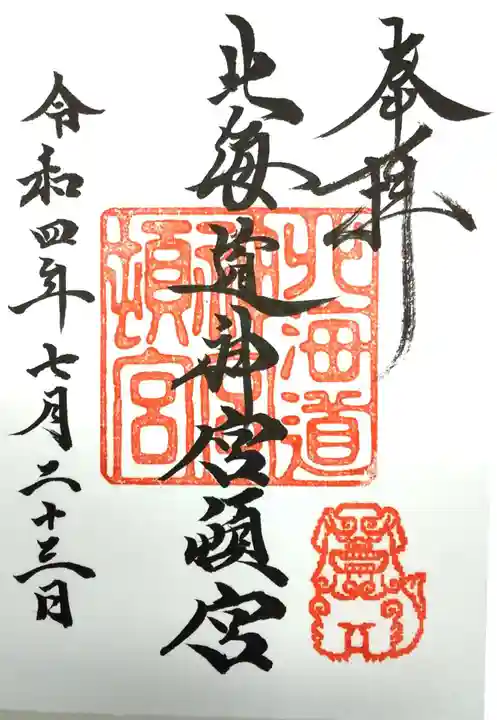 奉拝
北海道神宮頓宮
北海道
神宮
頓宮
令和四年七月二十三日